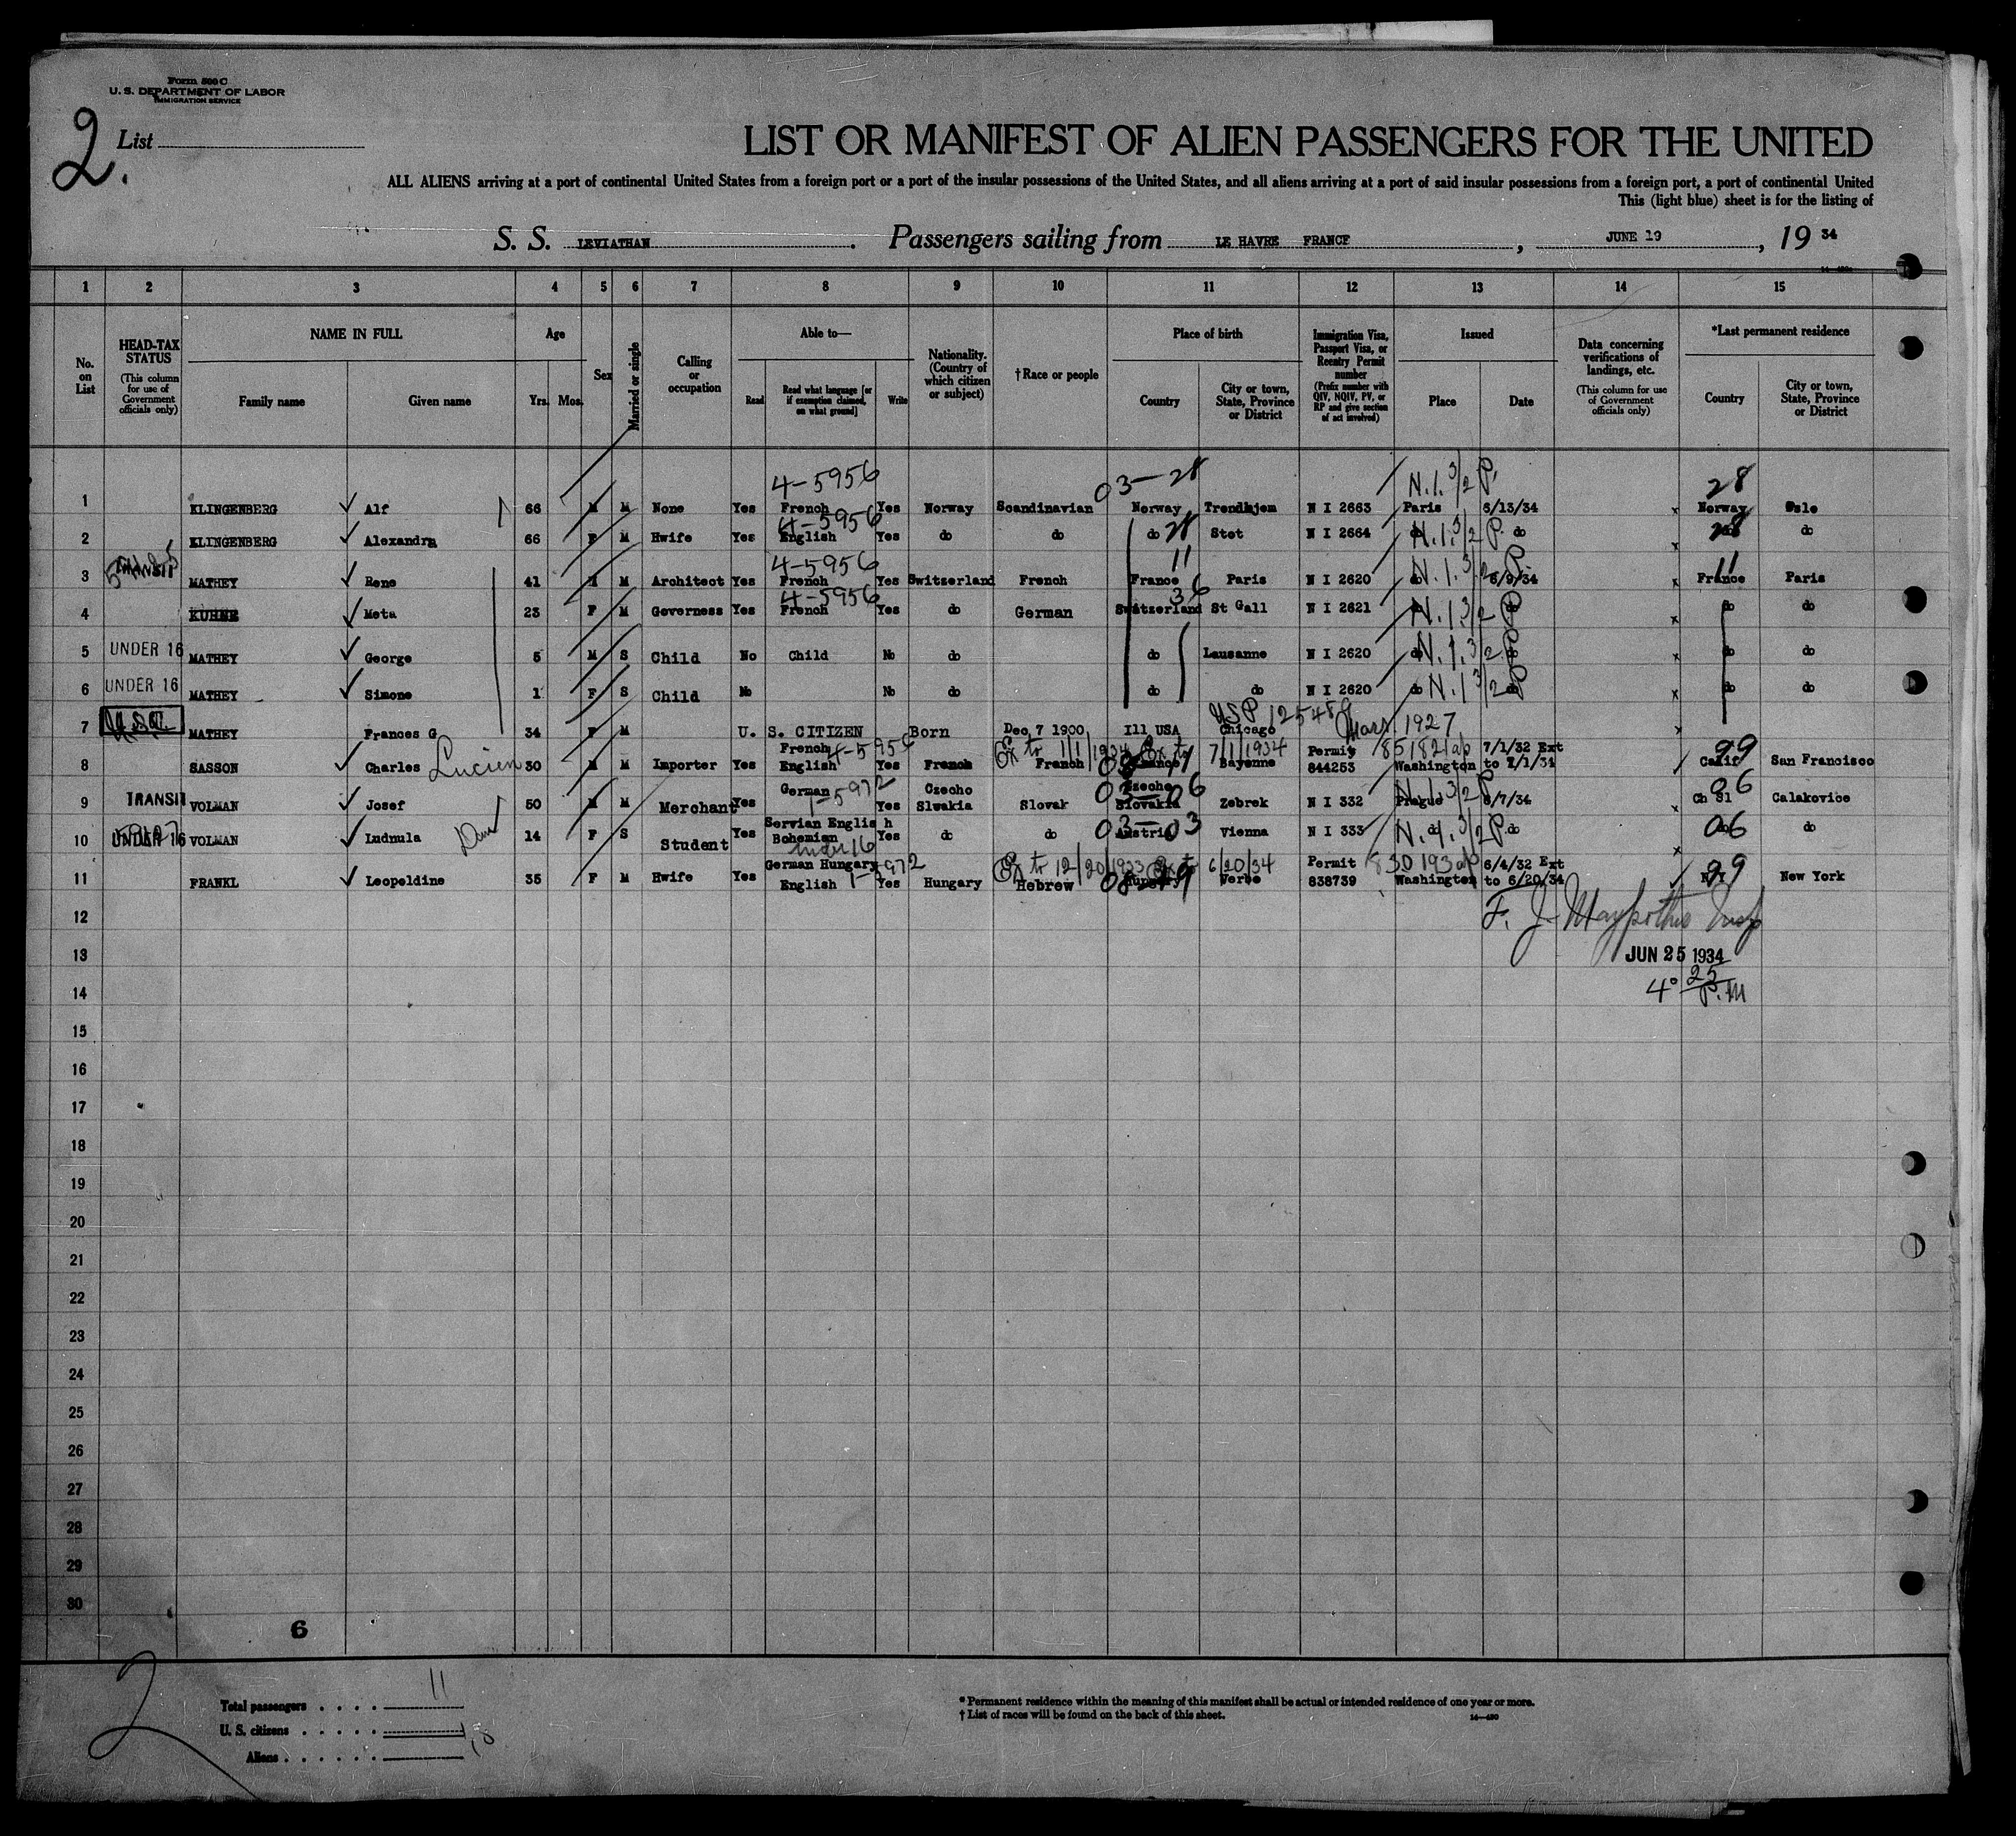 Form 500 C
U. S. DEPARTMENT OF LABOR
IMMIGRATION SERVICE
2.
List
LIST OR MANIFEST OF ALIEN PASSENGERS FOR THE UNITED
ALL ALIENS arriving at a port of continental United States from a foreign port or a port of the insular possessions of the United States, and all aliens arriving at a port of said insular possessions from a foreign port, a port of continental United
This (light blue) sheet is for the listing of
S. S. LEVIATHAN . Passengers sailing from LE HAVRE FRANCE , JUNE 19 , 19 34
1 2 3 4 5 6 7 8 9 10 11 12 13 14 15
No. on List
HEAD-TAX STATUS
(This column for use of Government officials only)
NAME IN FULL
Family name Given name
Age
Yrs. Mos.
Sex
Married or single
Calling or occupation
Able to—
Read
Read what language [or if exemption claimed, on what ground]
Write
Nationality. (Country of which citizen or subject)
†Race or people
Place of birth
Country
City or town, State, Province or District
Immigration Visa, Passport Visa, or Reentry Permit number
(Prefix number with QIV, NQIV, PV, or RP and give section of act involved)
Issued
Place Date
Data concerning verifications of landings, etc.
(This column for use of Government officials only)
*Last permanent residence
Country
City or town, State, Province or District
4-5956 03-28 N.I. 3/2 P. 28
1 KLINGENBERG Alf 66 M M None Yes French Yes Norway Scandinavian Norway Trondhjem N I 2663 Paris 6/13/34 Norway Oslo
4-5956 28 N.I. 3/2 P. 28
2 KLINGENBERG Alexandra 66 F M Hwife Yes English Yes do do do Stot N I 2664 do do
TRANSIT 4-5956 11 N.I. 3/2 P. 11
3 MATHEY Rene 41 M M Architect Yes French Yes Switzerland French France Paris N I 2620 do 6/9/34 France Paris
4-5956 36 N.I. 3/2 P
4 KUHNE Meta 23 F M Governess Yes French Yes do German Switzerland St Gall N I 2621 do do do do
5 UNDER 16 MATHEY George 5 M S Child No Child No do do Lausanne N I 2620 do N.I. 3/2 P do do do
6 UNDER 16 MATHEY Simone 1 F S Child No No do do do N I 2620 do N.I 3/2 P do do do
USP 125489 Mars. 1927
7 U.S.C. MATHEY Frances G 34 F M U. S. CITIZEN Born Dec 7 1900 Ill USA Chicago
French Ex to 1/1/1934 Ex to 7/1/1934 Permit 851821 7/1/32 Ext 99
8 SASSON Charles Lucien 30 M M Importer Yes English Yes French French France Bayonne 844253 Washington to 7/1/34 Calif San Francisco
German 1-5972 Czecho Czecho 03-06 N.I. 3/2 P 06
9 TRANSIT VOLMAN Josef 50 M M Merchant Yes Yes Slwakia Slovak Slovakia Zebrek N I 332 Prague 6/7/34 Ch Sl Calakovice
Servian Englis h 03-03 N.I. 3/2 P. 06
10 UNDER 16 VOLMAN Ludmula 14 F S Student Yes Bohemian Yes do do Austria Vienna N I 333 do do do do
under 16
German Hungary Ex to 12/20/1933 Ex to 6/20/34 Permit 830193 6/4/32 Ext 99
11 FRANKL Leopoldine 35 F M Hwife Yes English Yes Hungary Hebrew Hungary Verbe 838739 Washington to 6/20/34 N Y New York
12
F. J. Insp
13
JUN 25 1934
14
4 25 P.M
15
16
17
18
19
20
21
22
23
24
25
26
27
28
29
30
6
2
Total passengers . . . . 11
U. S. citizens . . . . .
Aliens . . . . . .
* Permanent residence within the meaning of this manifest shall be actual or intended residence of one year or more.
† List of races will be found on the back of this sheet.
14—480